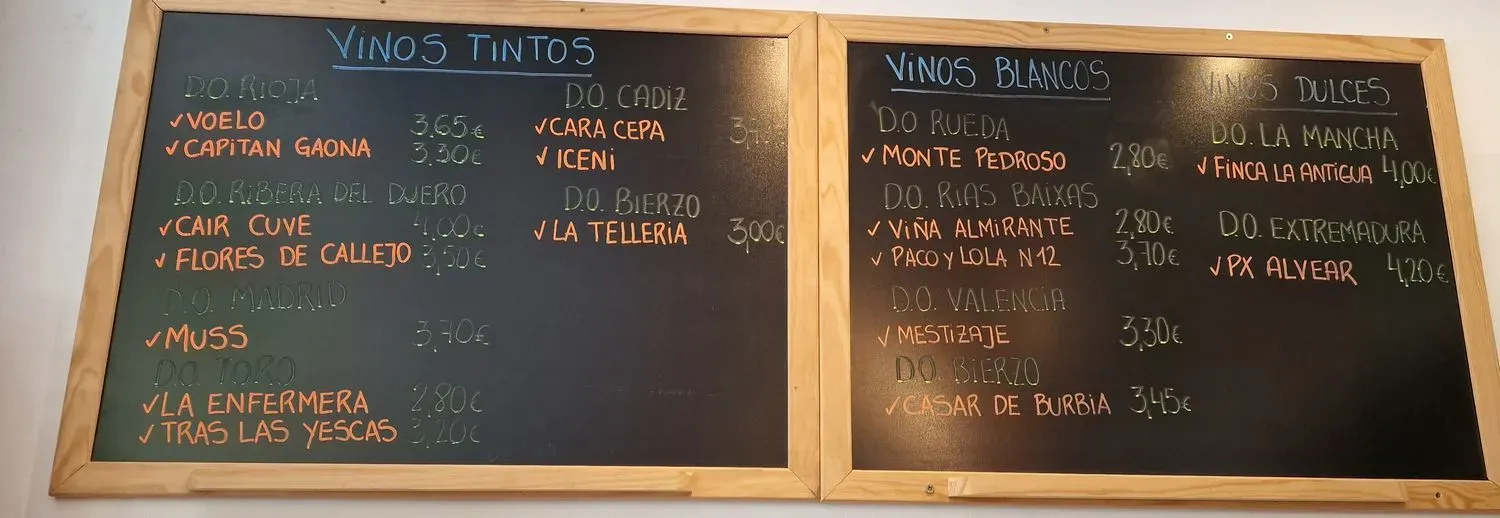 VINOS TINTOS
D.O. RIOJA
✓VOELO 3.65€
✓CAPITAN GAONA 3.30€
D.O. RIBERA DEL DUERO
✓CAIR CUVE 4,00€
✓FLORES DE CALLEJO 3,50€
D.O. MADRID
✓MUSS 3,70€
D.O. TORO
✓LA ENFERMERA 2,80€
✓TRAS LAS YESCAS 3,20€
D.O. CADIZ
✓CARA CEPA
✓ICENI
D.O. BIERZO
✓LA TELLERIA 3,00€
VINOS BLANCOS
D.O RUEDA
✓MONTE PEDROSO 2,80€
D.O. RIAS BAIXAS
✓VIÑA ALMIRANTE 2,80€
✓PACO Y LOLA N12 3,70€
D.O. VALENCIA
✓MESTIZAJE 3,30€
D.O. BIERZO
✓CASAR DE BURBIA 3,45€
VINOS DULCES
D.O. LA MANCHA
✓FINCA LA ANTIGUA 4,00€
D.O. EXTREMADURA
✓PX ALVEAR 4,20€